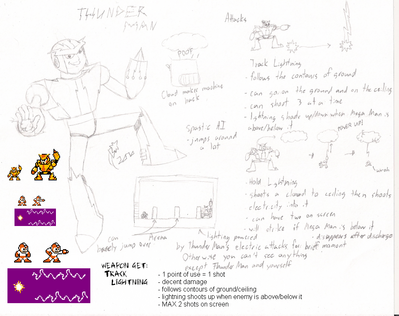 THUNDER
MAN
Attacks
POOF
Cloud maker machine
on back
Spastic AI
- jumps around
a lot
Track Lightning
- follows the contours of ground
- can go on the ground and on the ceiling
- can shoot 3 at a time
- lightning shoots up/down when Mega Man is
above/below it
Hold Lightning
- shoots a cloud to ceiling then shoots
electricity into it
- can have two on screen
- will strike if Mega Man is below it
- disappears after discharge
can
jump here
Arena
lightning powered
by Thunder Man's electric attacks for brief moment
Otherwise you can't see anything
except Thunder Man and yourself
WEAPON GET:
TRACK
LIGHTNING
- 1 point of use = 1 shot
- decent damage
- follows contours of ground/ceiling
- lightning shoots up when enemy is above/below it
- MAX 2 shots on screen